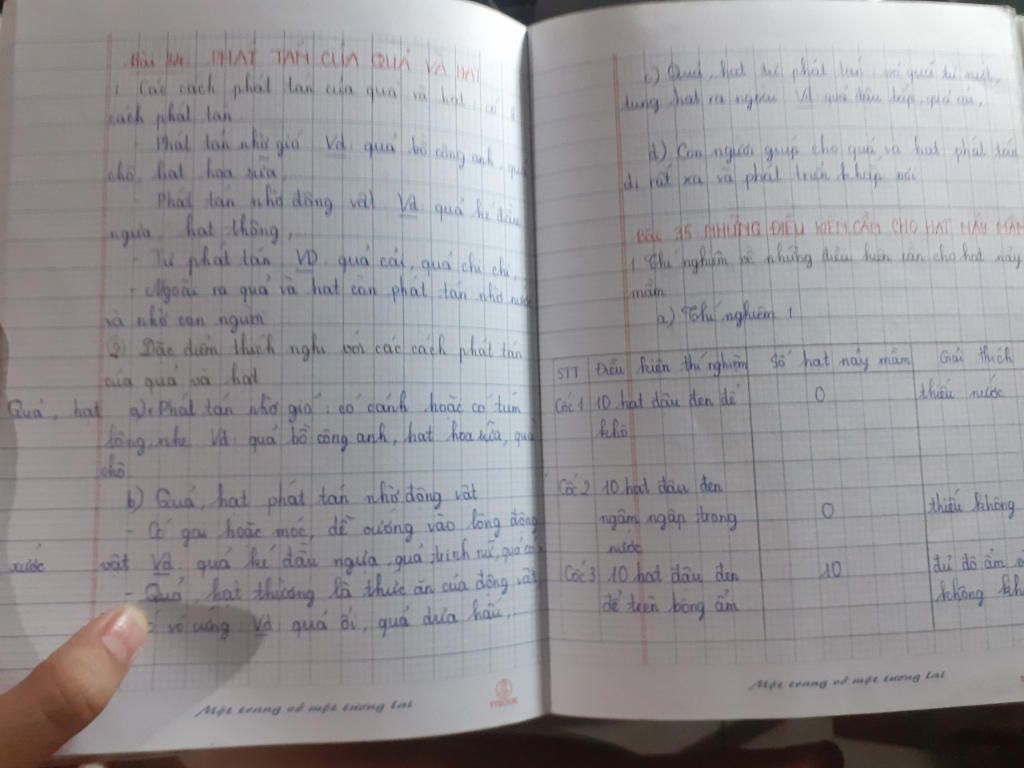 Bài 34. PHÁT TÁN CỦA QUẢ VÀ HẠT
1. Các cách phát tán của quả và hạt: có
cách phát tán
- Phát tán nhờ gió Vd: quả bồ công anh, quả
chò, hạt hoa sữa,
- Phát tán nhờ động vật Vd quả ké đầu
ngựa, hạt thông,...
- Tự phát tán VD quả cải, quả chi chi,
- Ngoài ra quả và hạt còn phát tán nhờ nước
và nhờ con người
2) Đặc điểm thích nghi với các cách phát tán
của quả và hạt
Quả, hạt a) Phát tán nhờ gió: có cánh hoặc có túm
lông, nhẹ Vd: quả bồ công anh, hạt hoa sữa, quả
chò
b) Quả, hạt phát tán nhờ động vật
- Có gai hoặc móc, dễ vướng vào lông động
nước vật Vd: quả ké đầu ngựa, quả trinh nữ, quả
- Quả, hạt thường là thức ăn của động vật
vỏ cứng Vd: quả ổi, quả dưa hấu,...
Một trang vở một tương lai
) Quả, hạt tự phát tán: vỏ quả tự nứt,
tung hạt ra ngoài Vd quả đậu bắp, quả cải,
d) Con người giúp cho quả và hạt phát tán
đi rất xa và phát triển khắp nơi
Bài 35. NHỮNG ĐIỀU KIỆN CẦN CHO HẠT NẢY MẦM
1. Thí nghiệm về những điều kiện cần cho hạt nảy
mầm
a) Thí nghiệm 1
STT Điều kiện thí nghiệm Số hạt nảy mầm Giải thích
Cốc 1 10 hạt đậu đen để 0 thiếu nước
khô
Cốc 2 10 hạt đậu đen thiếu không
ngâm ngập trong 0
nước
Cốc 3 10 hạt đậu đen 10 đủ độ ẩm
để trên bông ẩm không khí
Một trang vở một tương lai